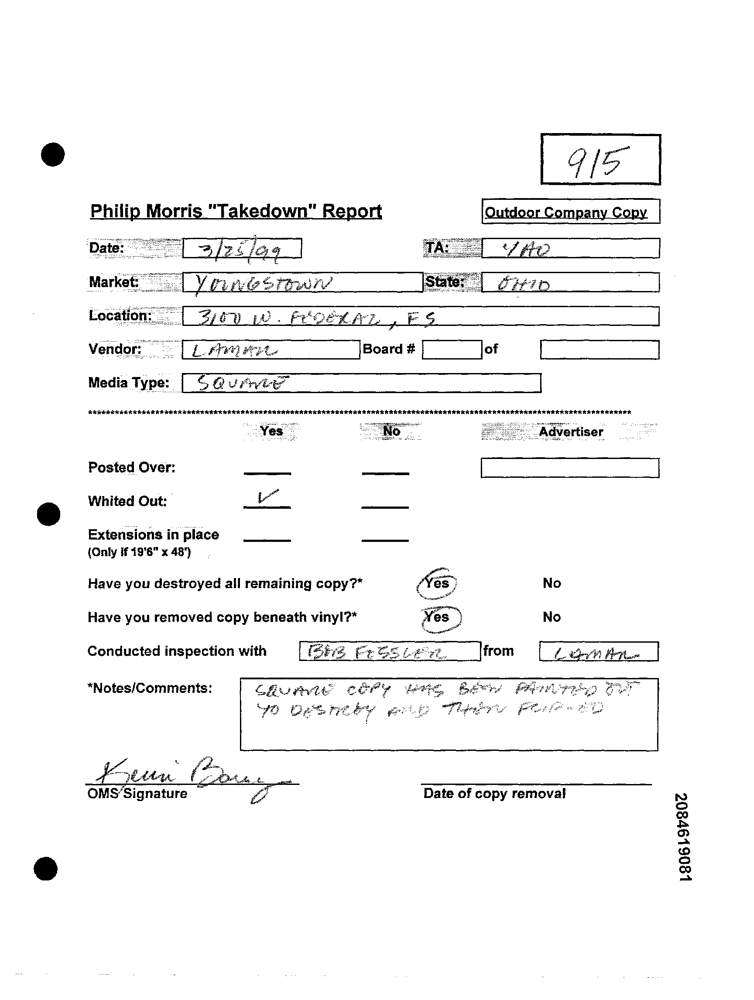 915
Philip Morris "Takedown" Report Outdoor Company Copy
Date: 3/25/99 TA: YAO
Market: YOUNGSTOWN State: OHIO
Location: 3100 W. FEDERAL, FS
Vendor: LAMAR Board # of
Media Type: SQUARE
********************************************************************************
Yes No Advertiser
Posted Over:
Whited Out: ✓
Extensions in place
(Only if 19'6" x 48')
Have you destroyed all remaining copy?* Yes No
Have you removed copy beneath vinyl?* Yes No
Conducted inspection with BOB FESSLER from LAMAR
*Notes/Comments: SQUARE COPY HAS BEEN PAINTED OUT
TO DESTROY AND THEN FLIPPED
OMS Signature Date of copy removal
2084619081